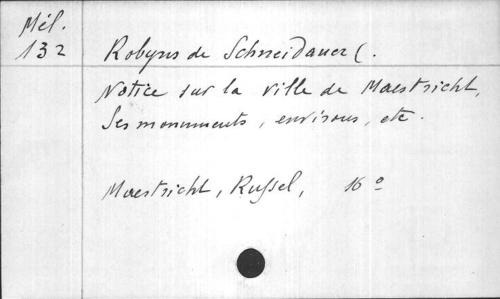 Mél.
132
Robyns de Schneidauer (.
Notice sur la ville de Maestricht,
ses monuments, environs, etc.
Maestricht, Russel, 16º